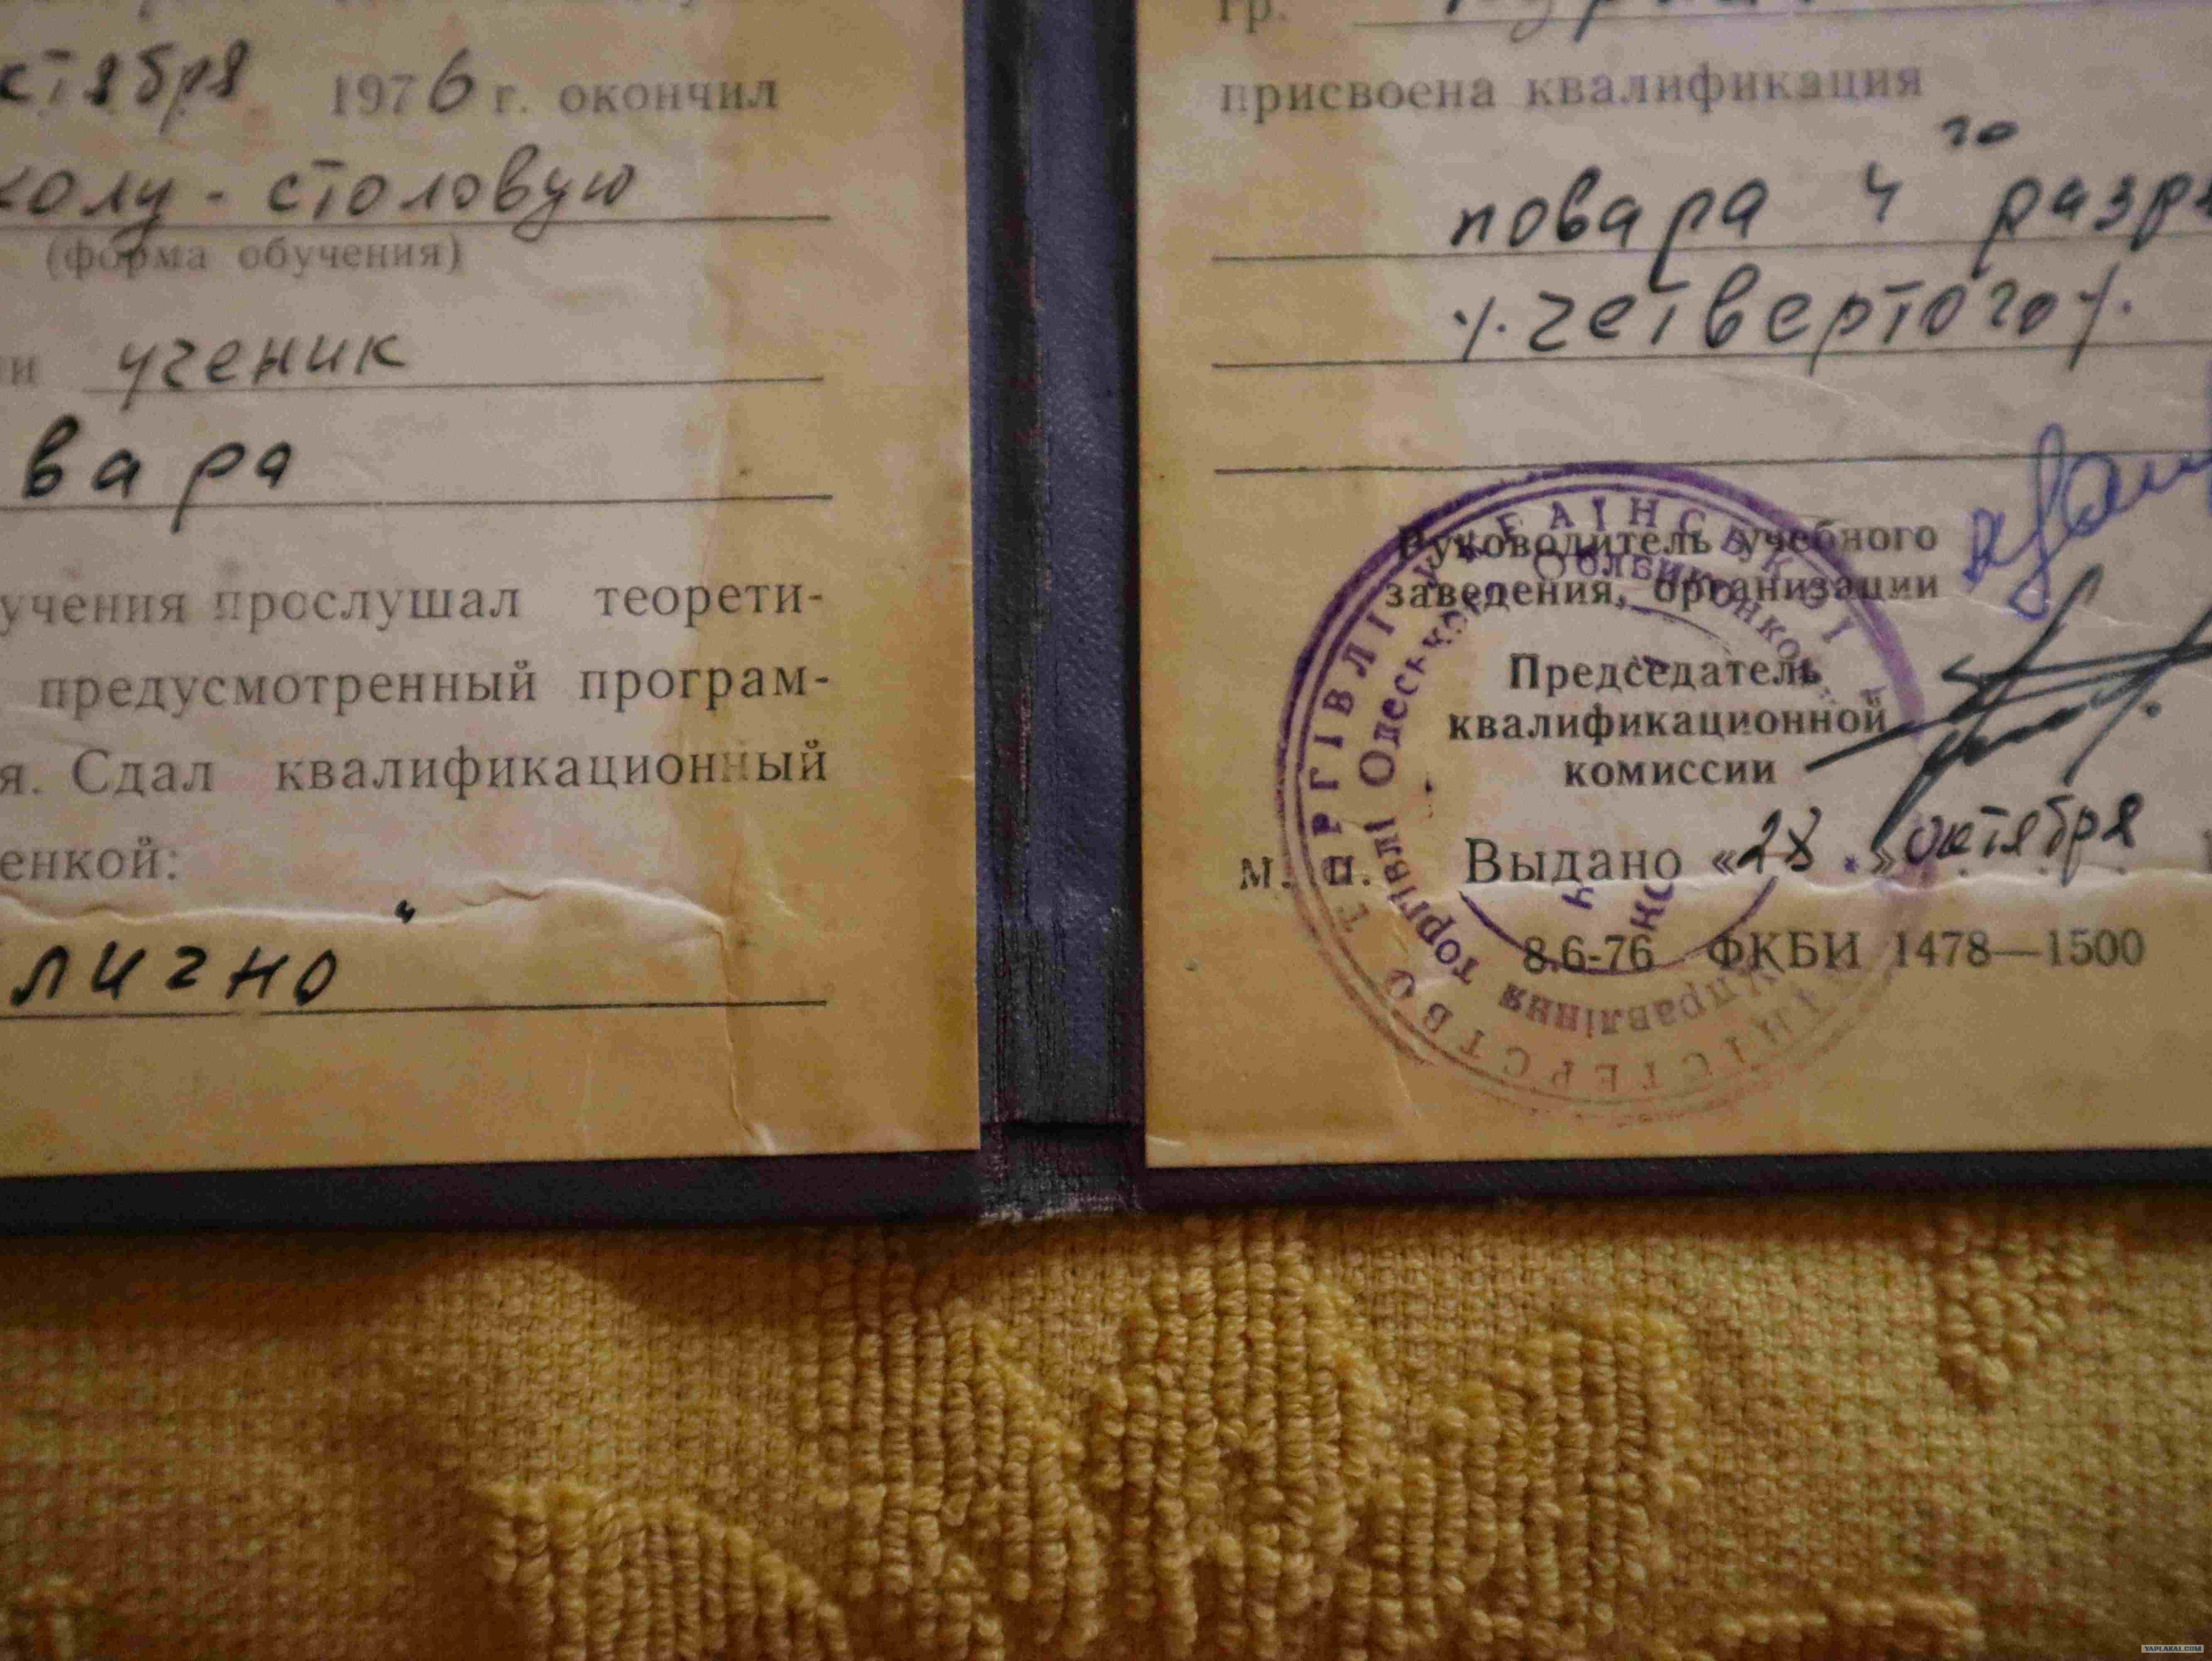 ктября 1976 г. окончил
колу - столовую
(форма обучения)
и ученик
вара
учения прослушал теорети-
предусмотренный програм-
я. Сдал квалификационный
енкой:
лично"
гр.
присвоена квалификация
повара 4го разр
/. четвертого /.
Руководитель учебного
заведения, организации
Председатель
квалификационной
комиссии
М. П. Выдано «28» октября
8.6-76 ФКБИ 1478—1500
МІНІСТЕРСТВО ТОРГІВЛІ УКРАІНСЬКОІ
Управління торгівлі Одеського Облвиконкому
YAPLAKAL.COM